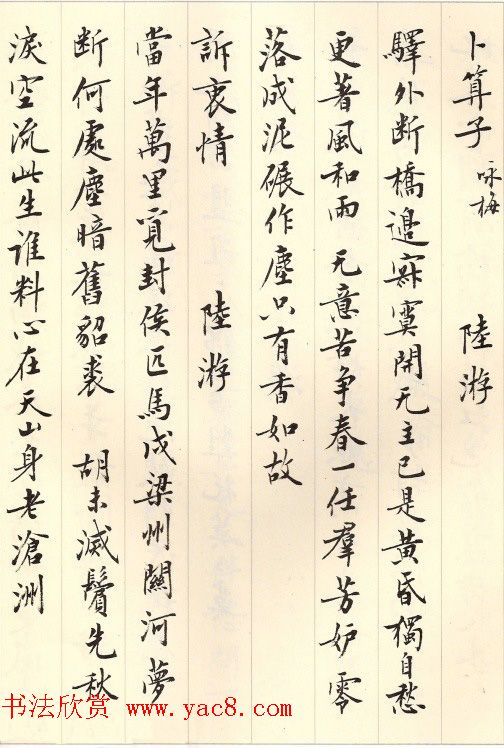 卜算子 咏梅 陸游
驛外断橋邊寂寞開无主已是黃昏獨自愁
更著風和雨 无意苦争春一任羣芳妒零
落成泥碾作塵只有香如故
訴衷情 陸游
當年萬里覓封侯匹馬戍梁州關河夢
断何處塵暗舊貂裘 胡未滅鬢先秋
淚空流此生谁料心在天山身老滄洲
书法欣赏 www.yac8.com